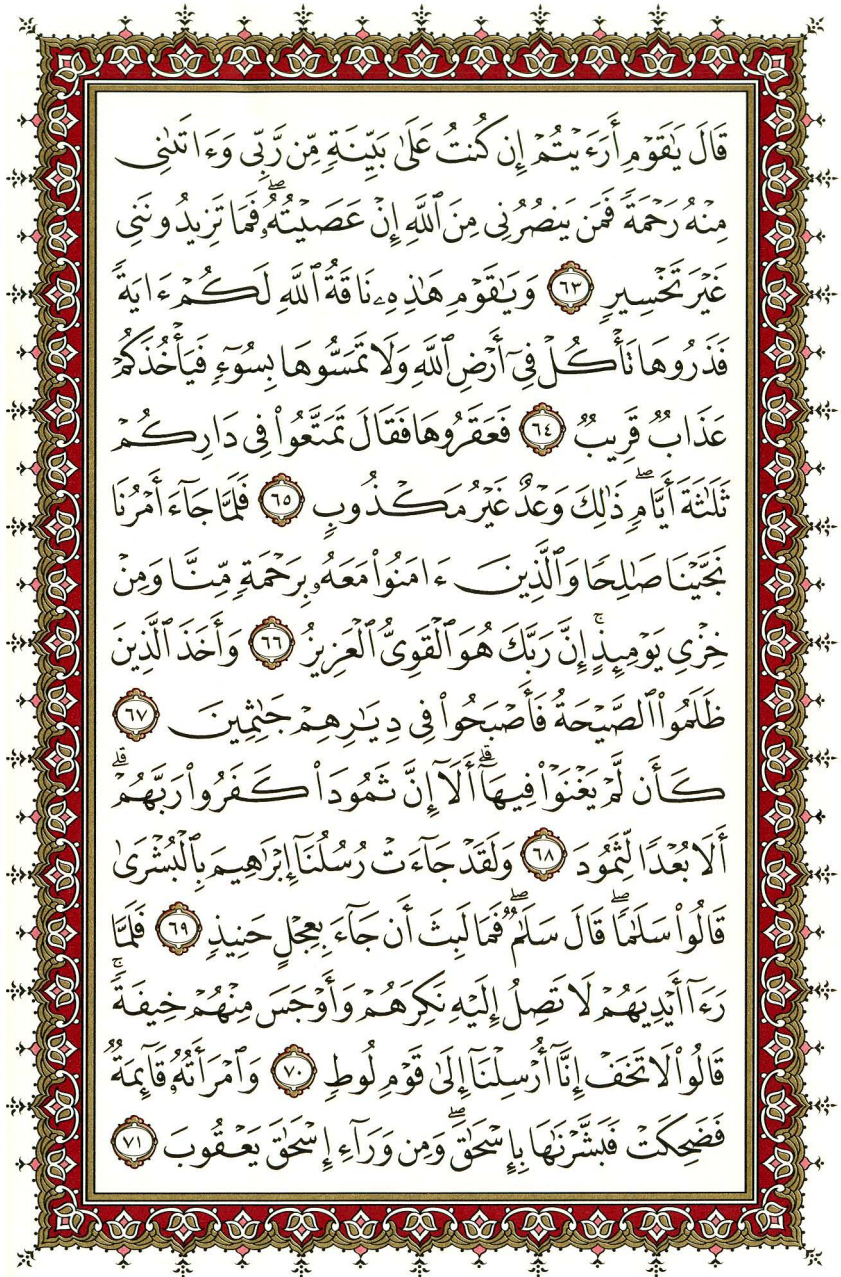 قَالَ يَٰقَوْمِ أَرَءَيْتُمْ إِن كُنتُ عَلَىٰ بَيِّنَةٍ مِّن رَّبِّى وَءَاتَىٰنِى
مِنْهُ رَحْمَةً فَمَن يَنصُرُنِى مِنَ ٱللَّهِ إِنْ عَصَيْتُهُۥۖ فَمَا تَزِيدُونَنِى
غَيْرَ تَخْسِيرٍ ٦٣ وَيَٰقَوْمِ هَٰذِهِۦ نَاقَةُ ٱللَّهِ لَكُمْ ءَايَةً
فَذَرُوهَا تَأْكُلْ فِىٓ أَرْضِ ٱللَّهِ وَلَا تَمَسُّوهَا بِسُوٓءٍ فَيَأْخُذَكُمْ
عَذَابٌ قَرِيبٌ ٦٤ فَعَقَرُوهَا فَقَالَ تَمَتَّعُوا۟ فِى دَارِكُمْ
ثَلَٰثَةَ أَيَّامٍۖ ذَٰلِكَ وَعْدٌ غَيْرُ مَكْذُوبٍ ٦٥ فَلَمَّا جَآءَ أَمْرُنَا
نَجَّيْنَا صَٰلِحًا وَٱلَّذِينَ ءَامَنُوا۟ مَعَهُۥ بِرَحْمَةٍ مِّنَّا وَمِنْ
خِزْىِ يَوْمِئِذٍۚ إِنَّ رَبَّكَ هُوَ ٱلْقَوِىُّ ٱلْعَزِيزُ ٦٦ وَأَخَذَ ٱلَّذِينَ
ظَلَمُوا۟ ٱلصَّيْحَةُ فَأَصْبَحُوا۟ فِى دِيَٰرِهِمْ جَٰثِمِينَ ٦٧
كَأَن لَّمْ يَغْنَوْا۟ فِيهَآۗ أَلَآ إِنَّ ثَمُودَا۟ كَفَرُوا۟ رَبَّهُمْۗ
أَلَا بُعْدًا لِّثَمُودَ ٦٨ وَلَقَدْ جَآءَتْ رُسُلُنَآ إِبْرَٰهِيمَ بِٱلْبُشْرَىٰ
قَالُوا۟ سَلَٰمًاۖ قَالَ سَلَٰمٌۖ فَمَا لَبِثَ أَن جَآءَ بِعِجْلٍ حَنِيذٍ ٦٩ فَلَمَّا
رَءَآ أَيْدِيَهُمْ لَا تَصِلُ إِلَيْهِ نَكِرَهُمْ وَأَوْجَسَ مِنْهُمْ خِيفَةًۚ
قَالُوا۟ لَا تَخَفْ إِنَّآ أُرْسِلْنَآ إِلَىٰ قَوْمِ لُوطٍ ٧٠ وَٱمْرَأَتُهُۥ قَآئِمَةٌ
فَضَحِكَتْ فَبَشَّرْنَٰهَا بِإِسْحَٰقَۖ وَمِن وَرَآءِ إِسْحَٰقَ يَعْقُوبَ ٧١